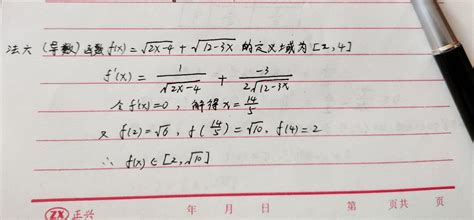 法六 (导数) 函数 f(x) = √(2x-4) + √(12-3x) 的定义域为 [2,4]
f'(x) = 1/√(2x-4) + -3/(2√(12-3x))
令 f'(x)=0 , 解得 x = 14/5
又 f(2)=√6 , f(14/5)=√10 , f(4)=2
∴ f(x) ∈ [2,√10]
ZX 正兴 年 月 日 第 页共 页